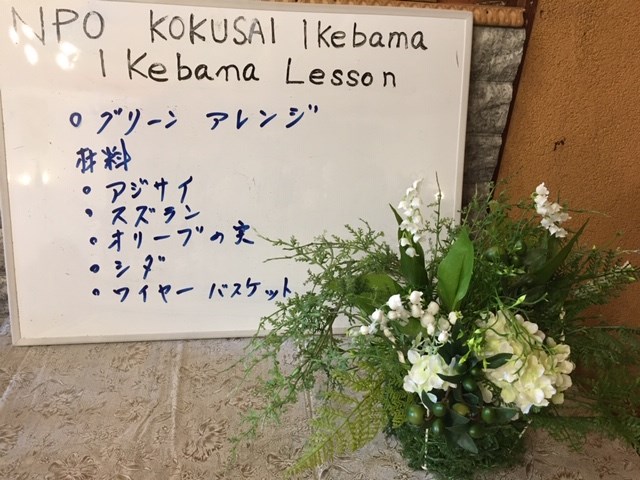 NPO KOKUSAI IKebama
IKebama Lesson
○グリーン アレンジ
材料
・アジサイ
・スズラン
・オリーブの実
・シダ
・ワイヤー バスケット